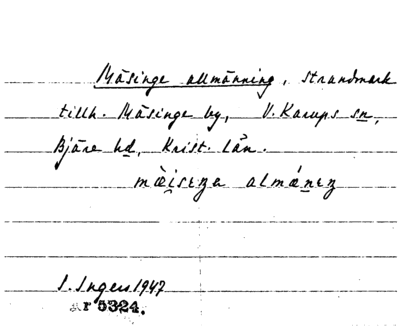 Mäsinge allmänning, strandmark
tillh. Mäsinge by, V. Karups sn,
Bjäre hd, Krist. län.
S. Ingers 1947
r 5324.